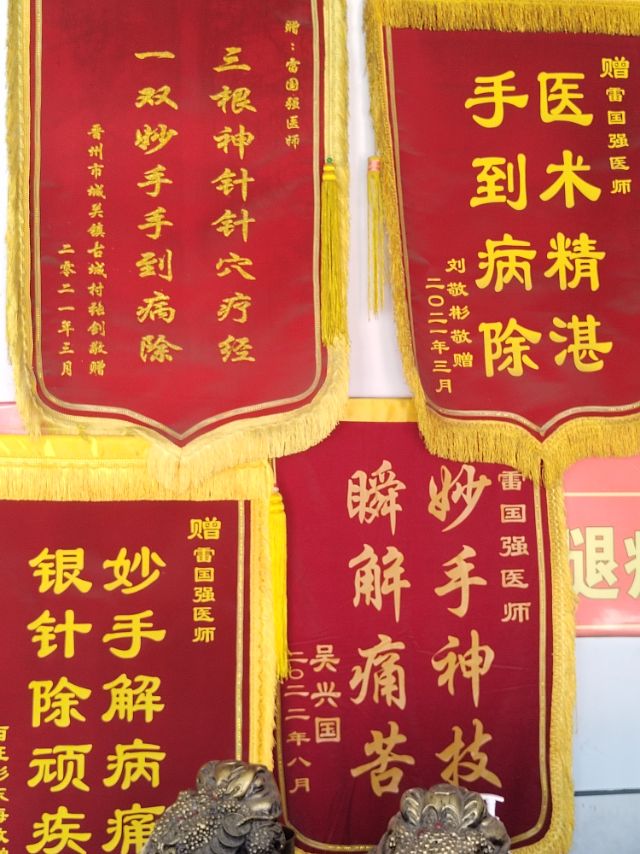 赠：雷国强医师
三根神针针穴疗经
一双妙手手到病除
晋州市城关镇古城村张剑敬赠
二零二一年三月
赠雷国强医师
医术精湛
手到病除
刘敬彬敬赠
二〇二一年三月
赠雷国强医师
妙手解病痛
银针除顽疾
雷国强医师
妙手神技
瞬解痛苦
吴兴国
二〇二二年八月
退